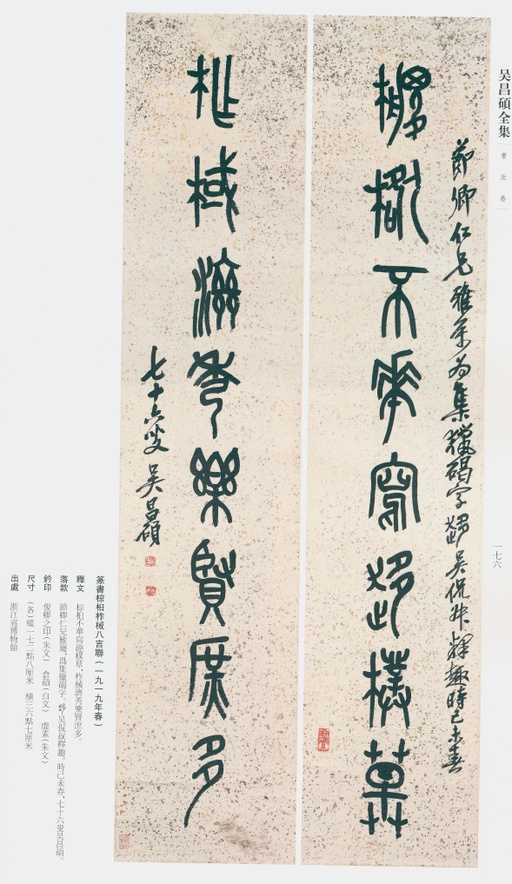 吴昌碩全集
書法卷
節卿仁兄雅屬為集獵碣字
吳侃叔釋趣時己未春
不華寫樸
柞棫濟秀樂賢庶多
七十六叟吴昌碩
一七六
篆書棕柏柞棫八言聯（一九一九年春）
釋文
落款 節卿仁兄雅屬，為集獵碣字，吴侃叔釋趣。時己未春，七十六叟吴昌碩。
鈐印 俊卿之印（朱文） 倉碩（白文） 虚素（朱文）
尺寸 （各）縱一七二點八厘米 橫三六點七厘米
出處 浙江省博物館